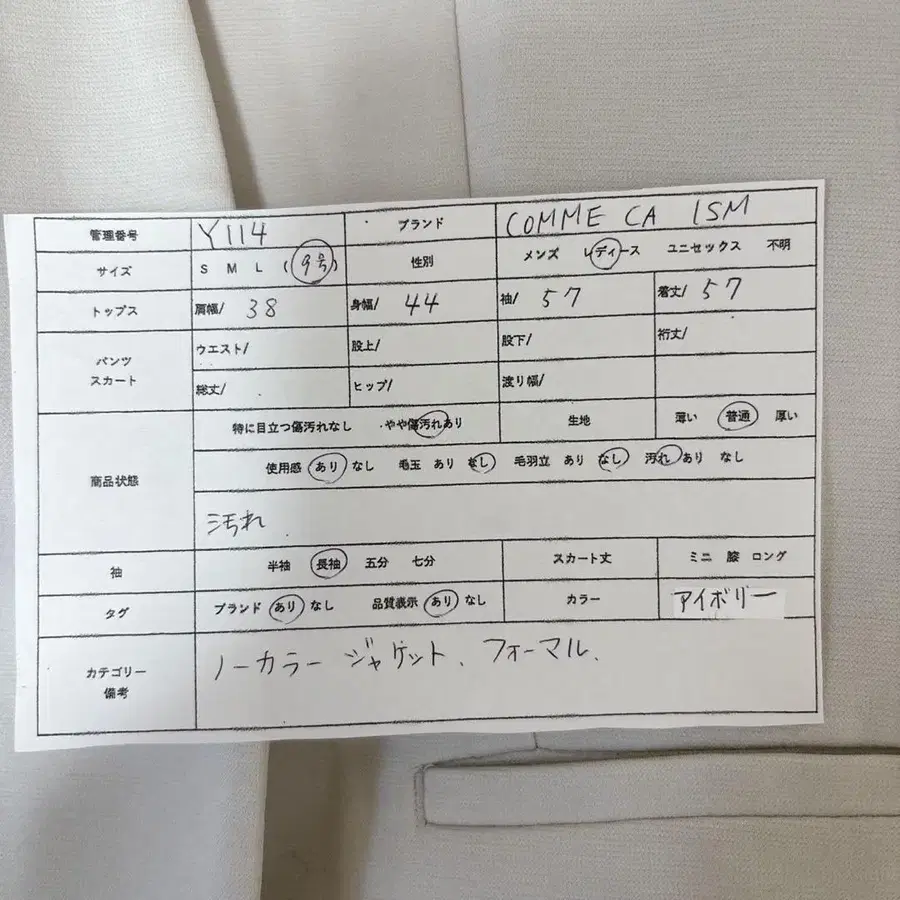 管理番号 Y114 ブランド COMME CA ISM
サイズ S M L (9号) 性別 メンズ レディース ユニセックス 不明
トップス 肩幅/ 38 身幅/ 44 袖/ 57 着丈/ 57
パンツ
スカート
ウエスト/ 股上/ 股下/ 裄丈/
総丈/ ヒップ/ 渡り幅/
商品状態
特に目立つ傷汚れなし ・やや傷汚れあり 生地 薄い 普通 厚い
使用感 あり なし 毛玉 あり なし 毛羽立 あり なし 汚れ あり なし
汚れ
袖 半袖 長袖 五分 七分 スカート丈 ミニ 膝 ロング
タグ ブランド あり なし 品質表示 あり なし カラー アイボリー
カテゴリー
備考
ノーカラー ジャケット、フォーマル、